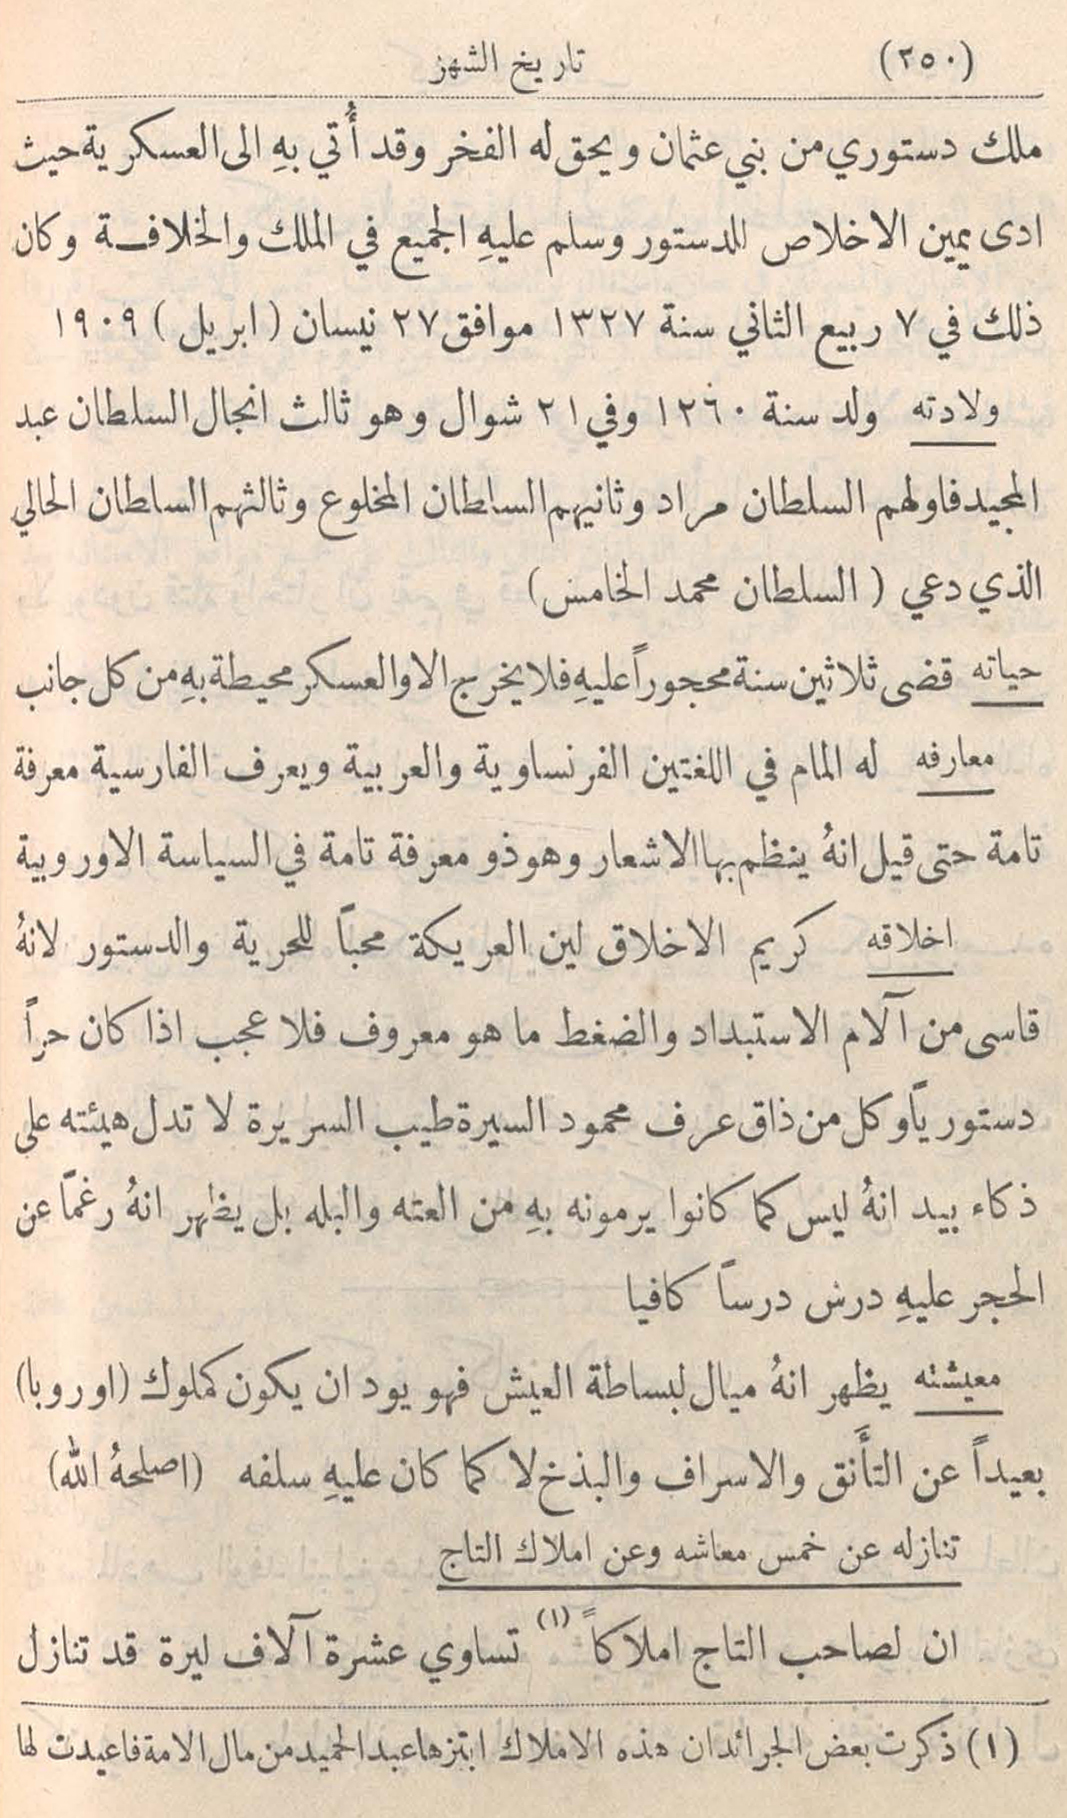 (٢٥٠) تاريخ الشهر
ملك دستوري من بني عثمان ويحق له الفخر وقد أُتي بهِ الى العسكرية حيث
ادى يمين الاخلاص للدستور وسلم عليهِ الجميع في الملك والخلافة وكان
ذلك في ٧ ربيع الثاني سنة ١٣٢٧ موافق ٢٧ نيسان ( ابريل ) ١٩٠٩
ولادته ولد سنة ١٢٦٠ وفي ٢١ شوال وهو ثالث انجال السلطان عبد
المجيد فاولهم السلطان مراد وثانيهم السلطان المخلوع وثالثهم السلطان الحالي
الذي دعي ( السلطان محمد الخامس)
حياته قضى ثلاثين سنة محجوراً عليهِ فلا يخرج الا والعسكر محيطة بهِ من كل جانب
معارفه له المام في اللغتين الفرنساوية والعربية ويعرف الفارسية معرفة
تامة حتى قيل انهُ ينظم بها الاشعار وهو ذو معرفة تامة في السياسة الاوروبية
اخلاقه كريم الاخلاق لين العريكة محباً للحرية والدستور لانهُ
قاسى من آلام الاستبداد والضغط ما هو معروف فلا عجب اذا كان حراً
دستورياً وكل من ذاق عرف محمود السيرة طيب السريرة لا تدل هيئته على
ذكاء بيد انهُ ليس كما كانوا يرمونه بهِ من العته والبله بل يظهر انهُ رغماً عن
الحجر عليهِ درس درساً كافيا
معيشته يظهر انهُ ميال لبساطة العيش فهو يود ان يكون كملوك (اوروبا)
بعيداً عن التأَنق والاسراف والبذخ لا كما كان عليهِ سلفه (اصلحهُ الله)
تنازله عن خمس معاشه وعن املاك التاج
ان لصاحب التاج املاكاً (١) تساوي عشرة آلاف ليرة قد تنازل
(١) ذكرت بعض الجرائد ان هذه الاملاك ابتزها عبد الحميد من مال الامة فاعيدت لها